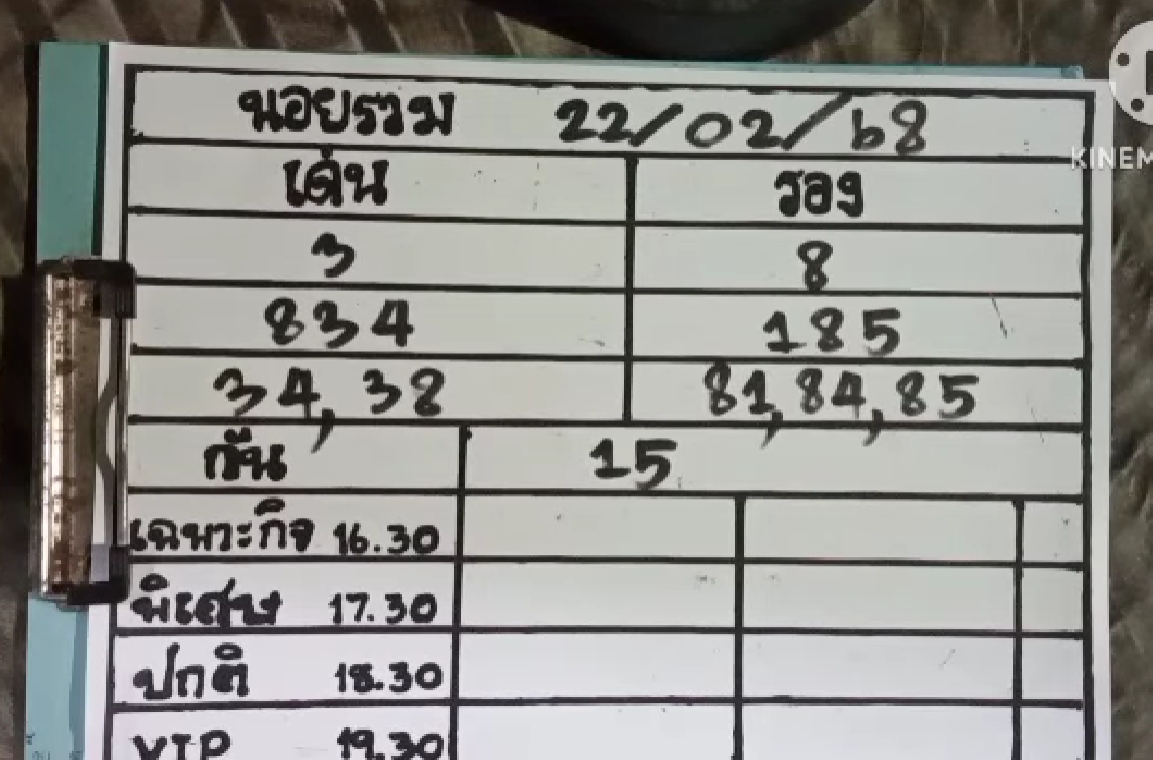 นอยรวม 22/02/68
เด่น รอง
3 8
834 185
34, 38 81, 84, 85
กัน 15
เฉพาะกิจ 16.30
พิเศษ 17.30
ปกติ 18.30
VIP 19.30
KINEM